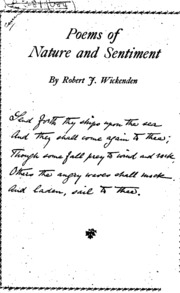 Poems of
Nature and Sentiment
By Robert J. Wickenden
Send forth thy ships upon the sea
And they shall come again to thee;
Though some fall prey to wind and rock
Others the angry waves shall mock
And laden, sail to thee.